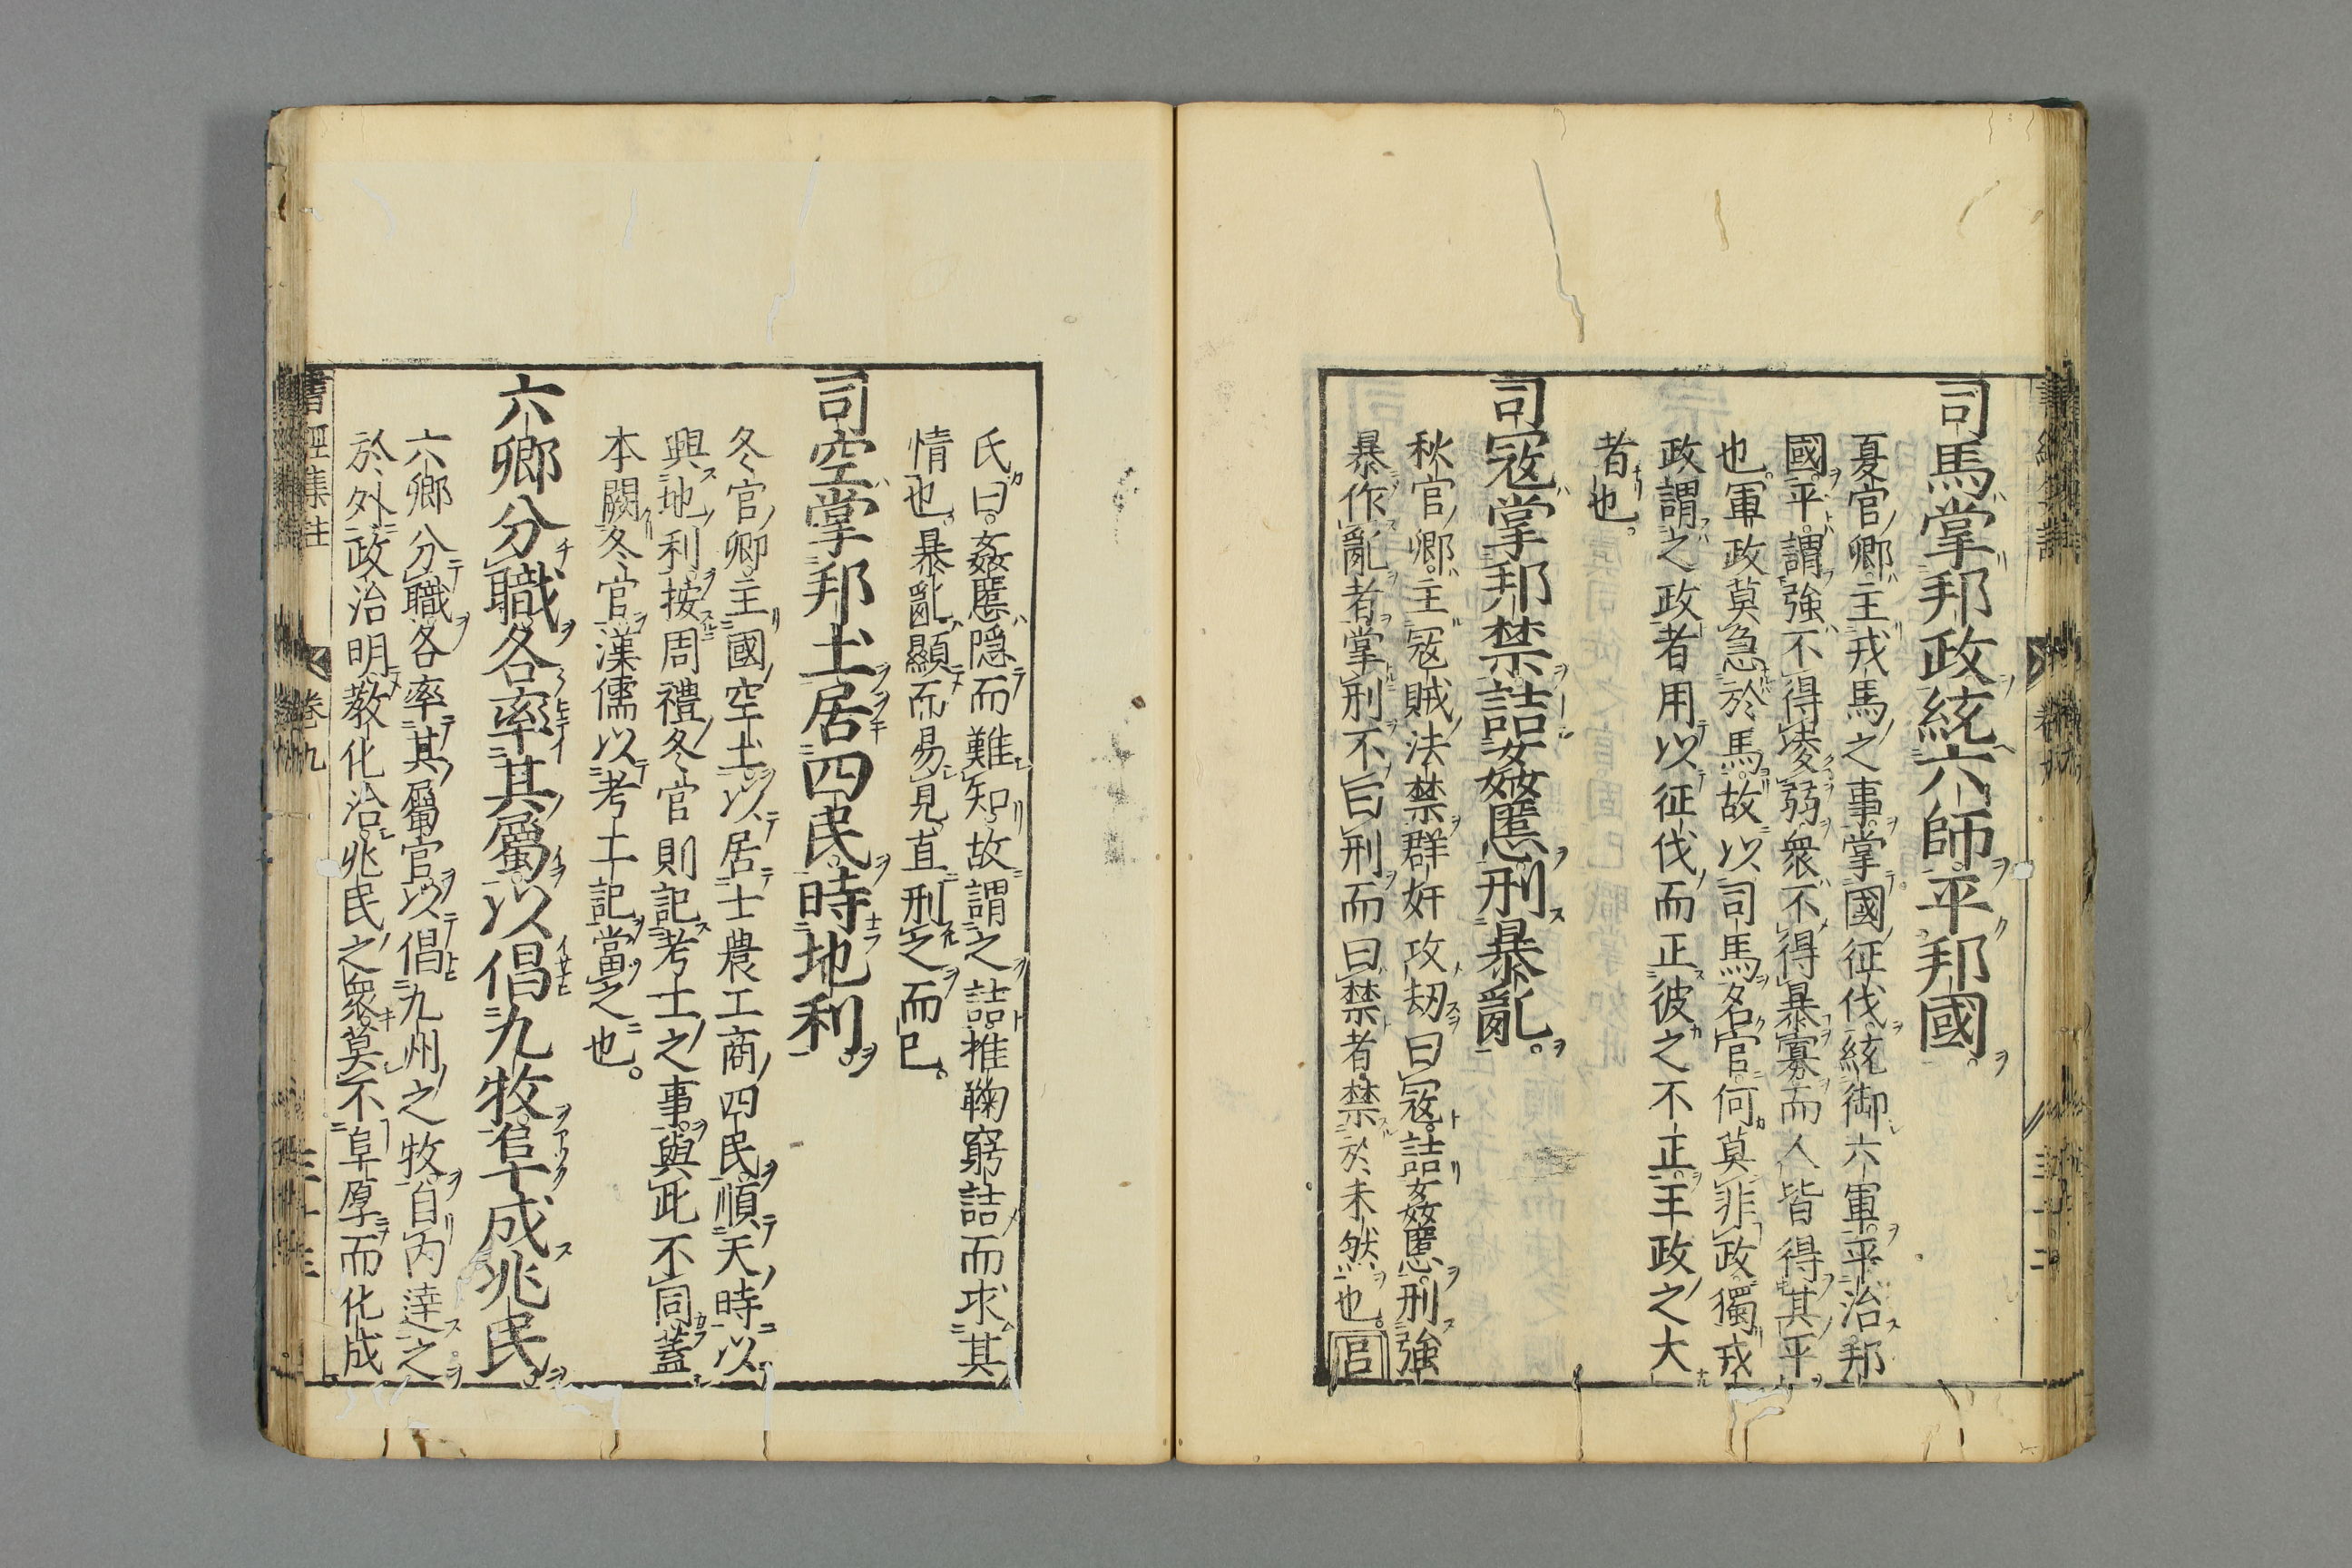 司馬掌邦政統六師平邦國
夏官卿主戎馬之事掌國征伐統御六軍平治邦
國平謂強不得凌弱衆不得暴寡而人皆得其平
也軍政莫急於馬故以司馬名官何莫非政獨戎
政謂之政者用以征伐而正彼之不正王政之大
者也
司寇掌邦禁詰姦慝刑暴亂
秋官卿主寇賊法禁群奸攻劫曰寇詰姦慝刑強
暴作亂者掌刑不曰刑而曰禁者禁於未然也呂
氏曰姦慝隱而難知故謂之詰推鞠窮詰而求其
情也暴亂顯而易見直刑之而已
司空掌邦土居四民時地利
冬官卿主國空土以居士農工商四民順天時以
興地利按周禮冬官則記考工之事與此不同蓋
本闕冬官漢儒以考工記當之也
六卿分職各率其屬以倡九牧阜成兆民
六卿分職各率其屬官以倡九州之牧自內達之
於外政治明教化洽兆民之衆莫不阜厚而化成
書經集註 卷九 三十三